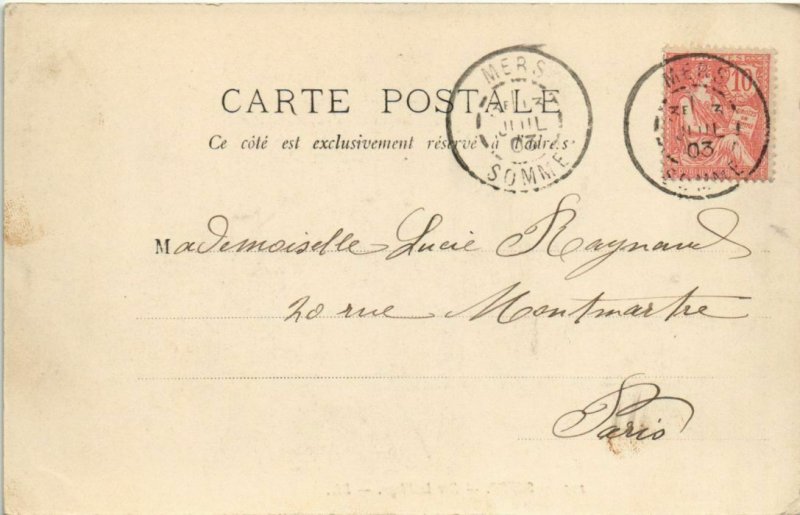 CARTE POSTALE
Ce côté est exclusivement réservé à l'adresse
MERS
JUIL
03
SOMME
10
MERS
JUIL
03
SOMME
Mademoiselle Lucie Raynaud
20 rue Montmartre
Paris